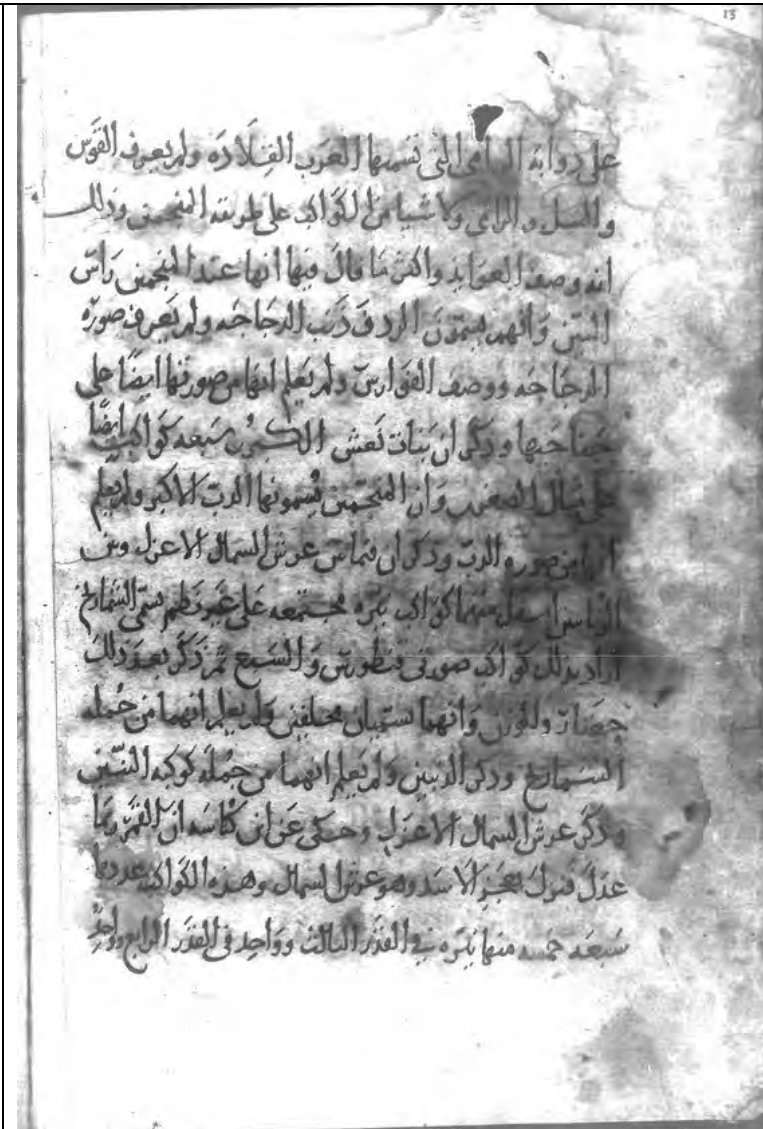 13
على دوابة الرامى التى تسميها العرب القلادة ولم يعرف القوس
والسل والرامى ولا شيا من الكواكب على طريقه المنجمين وذلك
انه وصف العوايذ واكثر ما قال فيها انها عند المنجمين راس
التنين وانهم يسمون الردف ذنب الدجاجه ولم يعرف صورة
الدجاجه ووصف الفوارس ولم يعلم انها من صورتها ايضا على
جناحيها وذكر ان بنات نعش الكبرى سبعه كواكب ايضا
على مثال الصغرى وان المنجمين يسمونها الدب الاكبر ولم يعلم
انها من صوره الدب وذكر ان فيما بين عرش السماك الاعزل وبين
اسفل منهما كواكب نيره مجتمعه على غير نظم سمى الشماريخ
اراد بذلك كواكب صورتى قنطورس والسبع ثم ذكر بعد ذلك
حضار والوزن وانهما يسميان محلفين ولم يعلم انهما من جمله
الشماريخ وذكر الذيبين ولم يعلم انهما من جمله كوكبه التنين
وذكر عرش السماك الاعزل وحكى عن ابن كناسه ان القمر ربما
عدل فنزل بعجز الاسد وهو عرش السماك وهذه الكواكب عددها
سبعه خمسه منها نيره فى القدر الثالث وواحد فى القدر الرابع وواحد